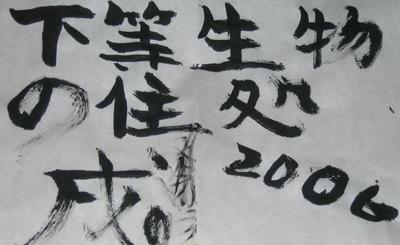 下等生物
の住処
2006
戌。